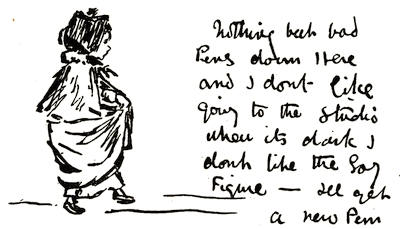 Nothing but bad
Pens down Here
and I dont like
going to the studio
when its dark I
dont like the Lay
Figure — Ill get
a new Pen